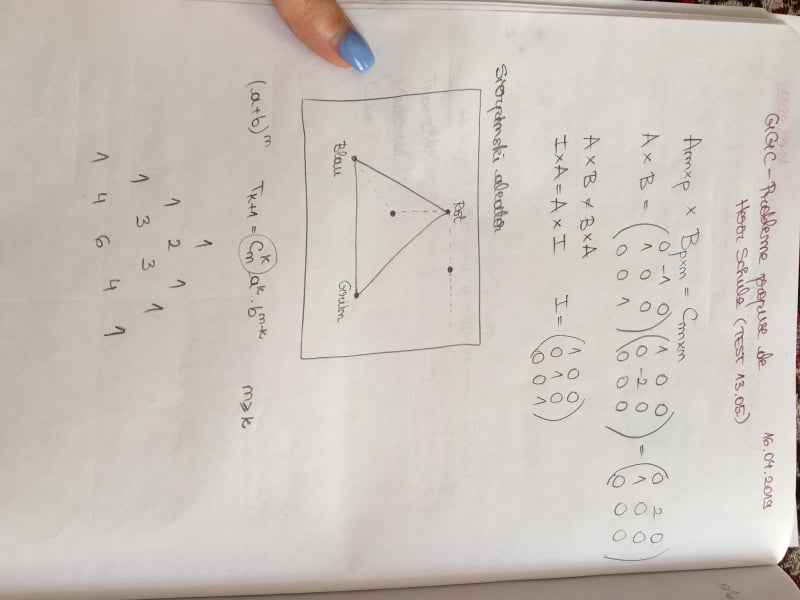 GGC - Probleme propuse de 16.04.2019
Herr Schulz (TEST 13.05.)
Amxp x Bpxm = Cmxm
A x B = (0 -1 0) (1 0 0) = (0 2 0)
(1 0 0) (0 -2 0) (1 0 0)
(0 0 1) (0 0 0) (0 0 0)
A x B ≠ B x A
I x A = A x I I = (1 0 0)
(0 1 0)
(0 0 1)
Sierpinski aleator
Rot
Blau Grün
(a+b)^m T_{k+1} = C_m^k a^k · b^{m-k} m ≥ k
1
1 2 1
1 3 3 1
1 4 6 4 1